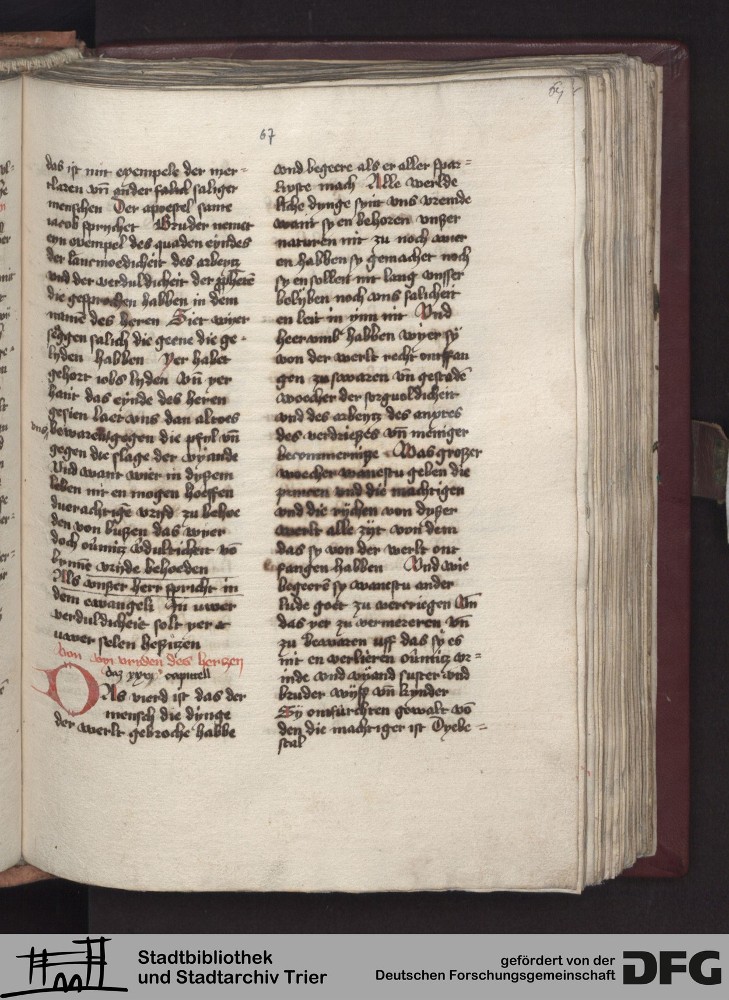 67
das ist mit exempele der mer=
tlaren vnd ander salich saliger
menschen Der apostel sante
iacob sprychet Bruder nemet
eyn exempel des quaden eyndes
der lancmoedicheit des arbeytz
vnd der verduldicheit der prophetē
die gesprochen habben in dem
namē des heren Siet wyer
seggen salich die geene die ge-
lyden habben Yer habet
gehort iobs lyden vn̄ yer
haut das eynde des heren
gesien laet vns dan altoes
vns bewaren gegen die pfyl vn̄
gegen die slage der vyande
Vnd want wier in dyßem
leben nit en mogen hoeffen
den von bußen das wyer
doch oūmitz v̄dulticheit vō
bynnē vrijde behoeden
Als vnßer herr spricht in
dem ewangeli In uwer
verduldicheit solt yer
uwer selen besitzen
von vriden des hertzen
daz xxxj capittell
DAs vierd ist das der
mensch die dynge
der werlt gebroche habbe
vnd begeere als er aller spar=
lixste mach Alle werlde
liche dynge synt vns vremde
want sy en behoren vnßer
naturen nit zu noch wier
en habben sy gemachet noch
sy en sollent nit lang vnsser
belyben noch vns salicheit
en leit in ynn nit Vnd
heer vmb habben wyer sy
von der werlt recht ontffan
gen zu swaren vn̄ gestadē
woecher der sorguoldicheit
vnd des arbeytz des anxtes
des verdrießes vn̄ meniger
becommernisse Was großer
woecher wanestu geben die
princen vnd die machtigen
vnd die rychen von dyßer
werlt alle zyt von dem
das sy von der werlt ont
fangen habben Vnd wie
begeers sy wanestu ander
lude goet zu vercriegen Vn̄
das yer zu vermereren vn̄
zu bewaren uff das sy es
nit en verlieren oūmitz vr=
inde vnd vyand suster vnd
bruder wyff vn̄ kynder
Sy ontfurchten gewalt vō
den die machtiger ist Dyebe=
stal
Stadtbibliothek
und Stadtarchiv Trier
gefördert von der
Deutschen Forschungsgemeinschaft
DFG